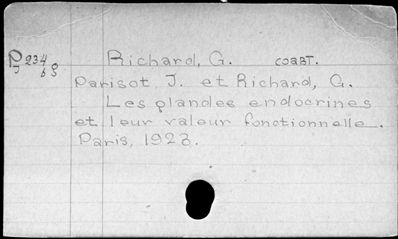 P 234 Richard, G. соавт.
J 69
Parisot, J. et Richard, G.
Les glandes endocrines
et leur valeur fonctionnelle.
Paris, 1923.